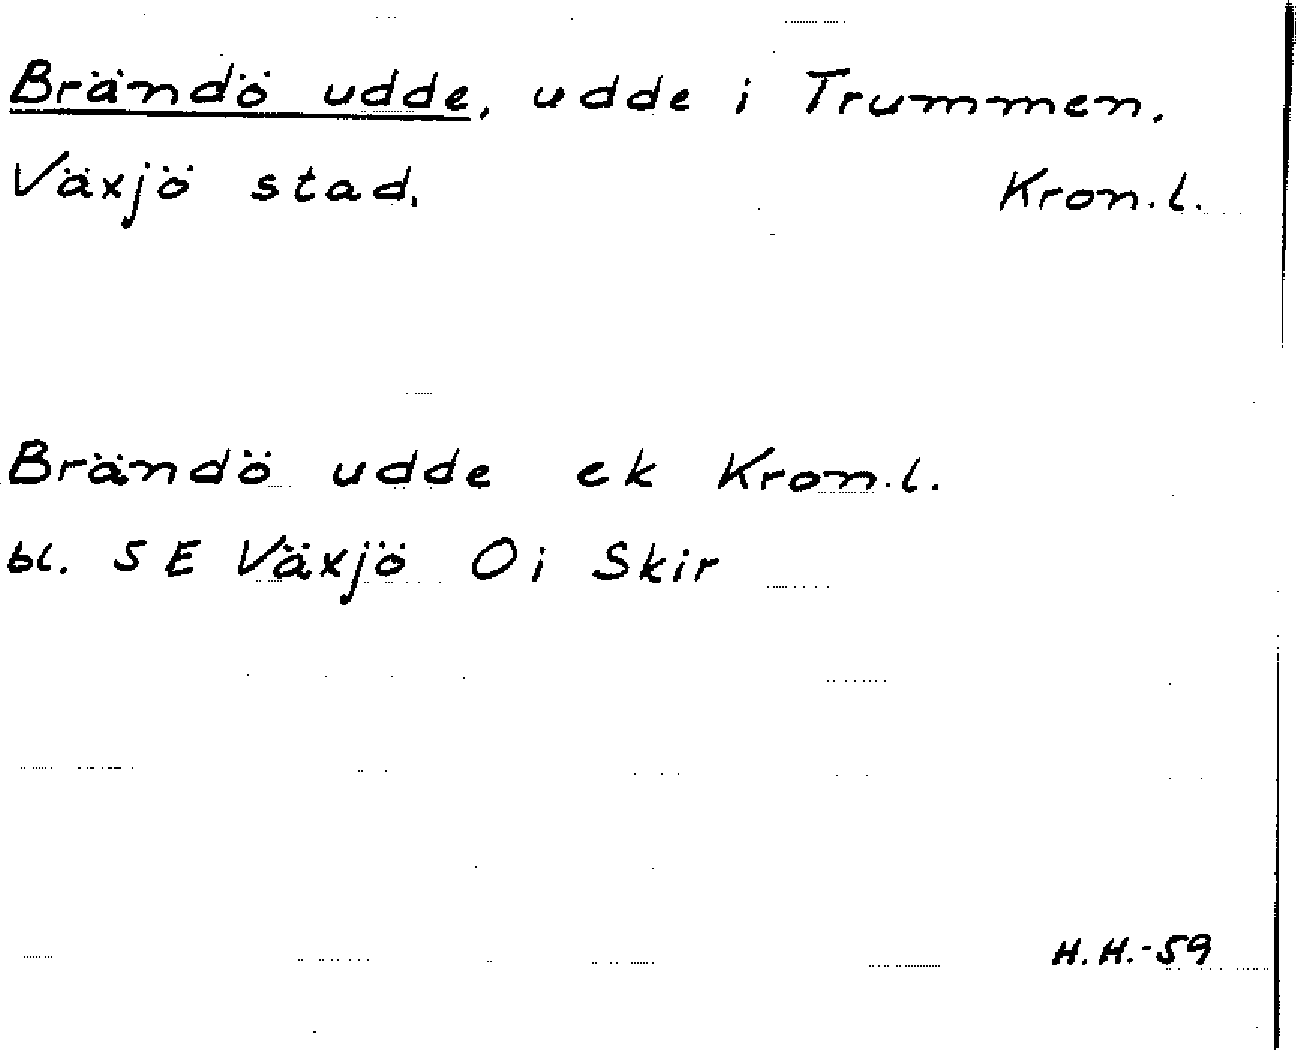 Brändö udde, udde i Trummen.
Växjö stad. Kron.l.
Brändö udde ek Kron.l.
bl. 5 E Växjö Oi Skir
H.H.-59